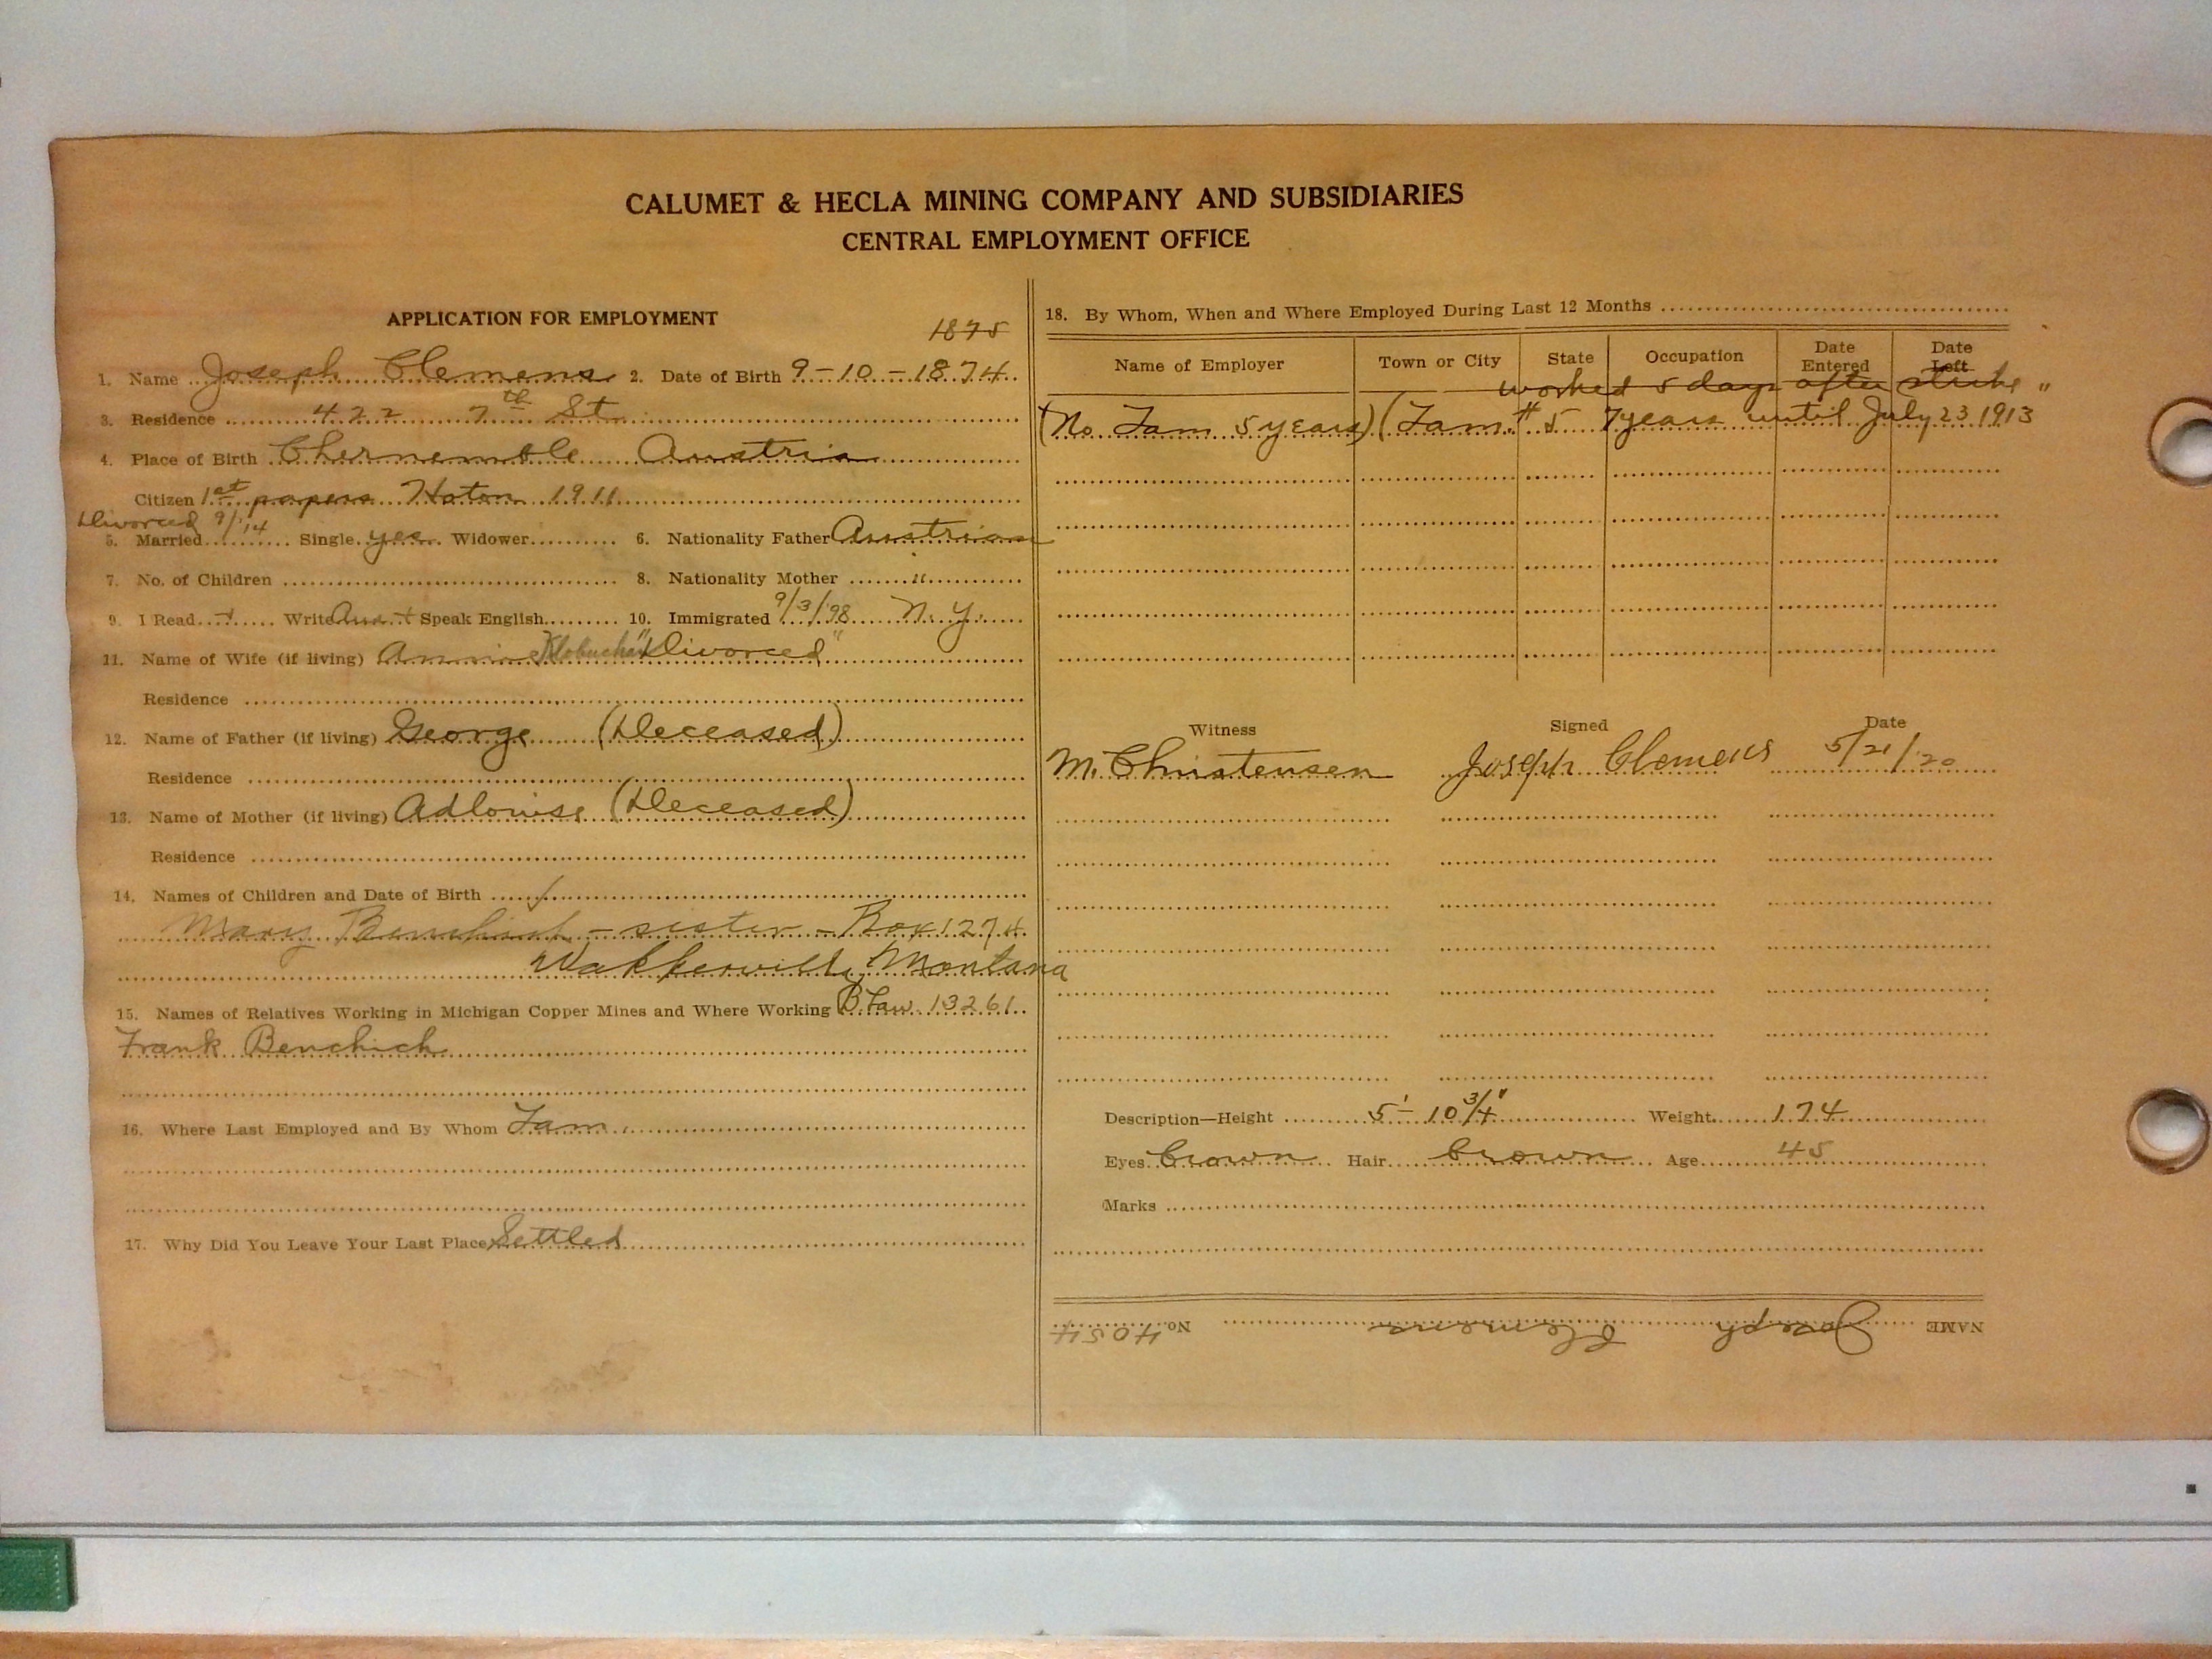 CALUMET & HECLA MINING COMPANY AND SUBSIDIARIES
CENTRAL EMPLOYMENT OFFICE
APPLICATION FOR EMPLOYMENT
1875
1. Name Joseph Clemens 2. Date of Birth 9-10-1874
3. Residence 422 7th St.
4. Place of Birth Chernemble Austria
Citizen 1st papers Hoton 1911
Divorced 9/'14
5. Married Single yes Widower 6. Nationality Father Austrian
7. No. of Children 8. Nationality Mother "
9. I Read + Write Aus + Speak English 10. Immigrated 9/3/'98 N.Y.
11. Name of Wife (if living) Annie Klobuchar "Divorced"
Residence
12. Name of Father (if living) George (Deceased)
Residence
13. Name of Mother (if living) Adlowise (Deceased)
Residence
14. Names of Children and Date of Birth
Mary Benchich - sister - Box 1274
Walkerville, Montana
15. Names of Relatives Working in Michigan Copper Mines and Where Working B Law 13261
Frank Benchich
16. Where Last Employed and By Whom Tam.
17. Why Did You Leave Your Last Place Settled
18. By Whom, When and Where Employed During Last 12 Months
Name of Employer Town or City State Occupation Date Entered Date Left
worked 5 days after strike "
(No Tam 5 years) (Tam. # 5 7 years until July 23 1913
Witness Signed Date
M. Christensen Joseph Clemens 5/21/20
Description—Height 5'- 10 3/4" Weight 174
Eyes brown Hair brown Age 45
Marks
NAME Joseph Clemens No. 14054